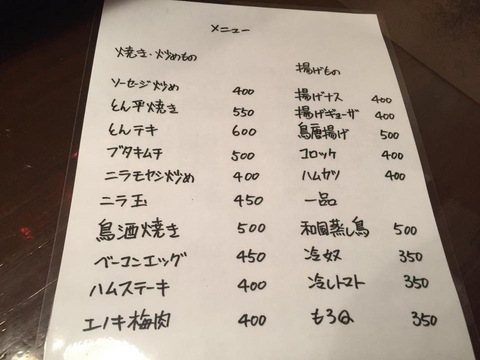 メニュー
焼き・炒めもの
ソーセージ炒め 400
とん平焼き 550
とんテキ 600
ブタキムチ 500
ニラモヤシ炒め 400
ニラ玉 450
鳥酒焼き 500
ベーコンエッグ 450
ハムステーキ 400
エノキ梅肉 400
揚げもの
揚げナス 400
揚げギョーザ 400
鳥唐揚げ 500
コロッケ 400
ハムカツ 400
一品
和風蒸し鳥 500
冷奴 350
冷しトマト 350
もろQ 350